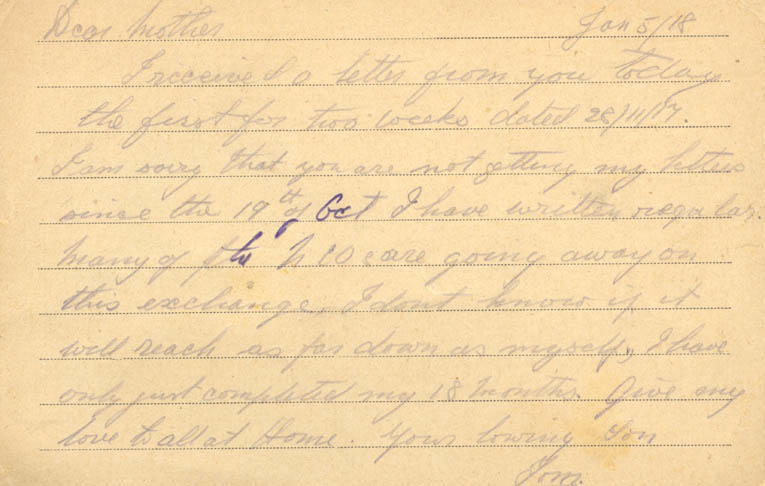 Dear Mother Jan 5/18
I received a letter from you today
the first for two weeks dated 28/11/17.
I am sorry that you are not getting my letters
since the 19th of Oct I have written regular.
Many of the N C O s are going away on
this exchange, I dont know if it
will reach as far down as myself, I have
only just completed my 18 months. Give my
love to all at Home. Yours loving Son
Tom.